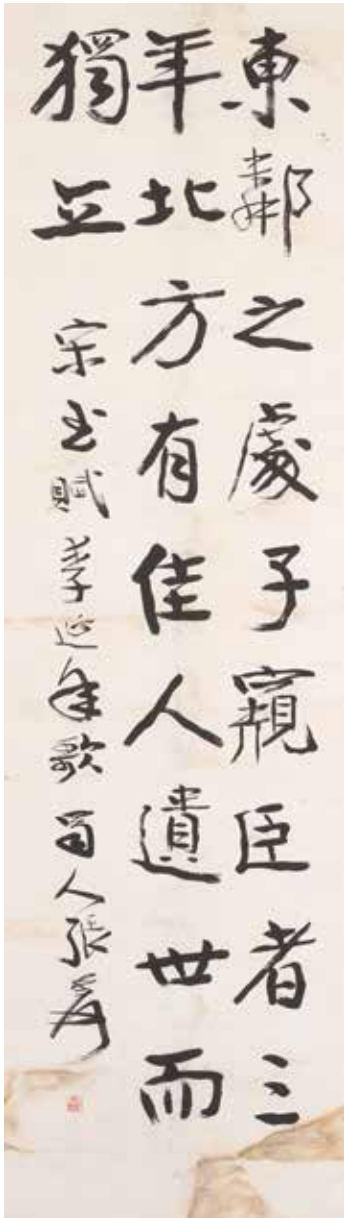 東鄰之處子窺臣者三
年北方有佳人遺世而
獨立 宋玉賦李延年歌 蜀人張爰